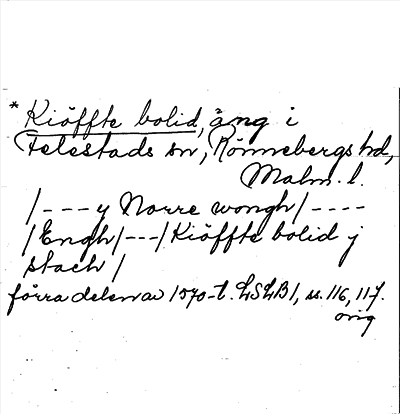 * Kiöffte bolid, äng i
Felestads sn, Rönnebergs hd,
Malm. l.
/---y Norre wongh/----
/Engh/---/Kiöffte bolid j
stach/
förra delen av 1570-t. LSLB1, ss. 116, 117.
orig